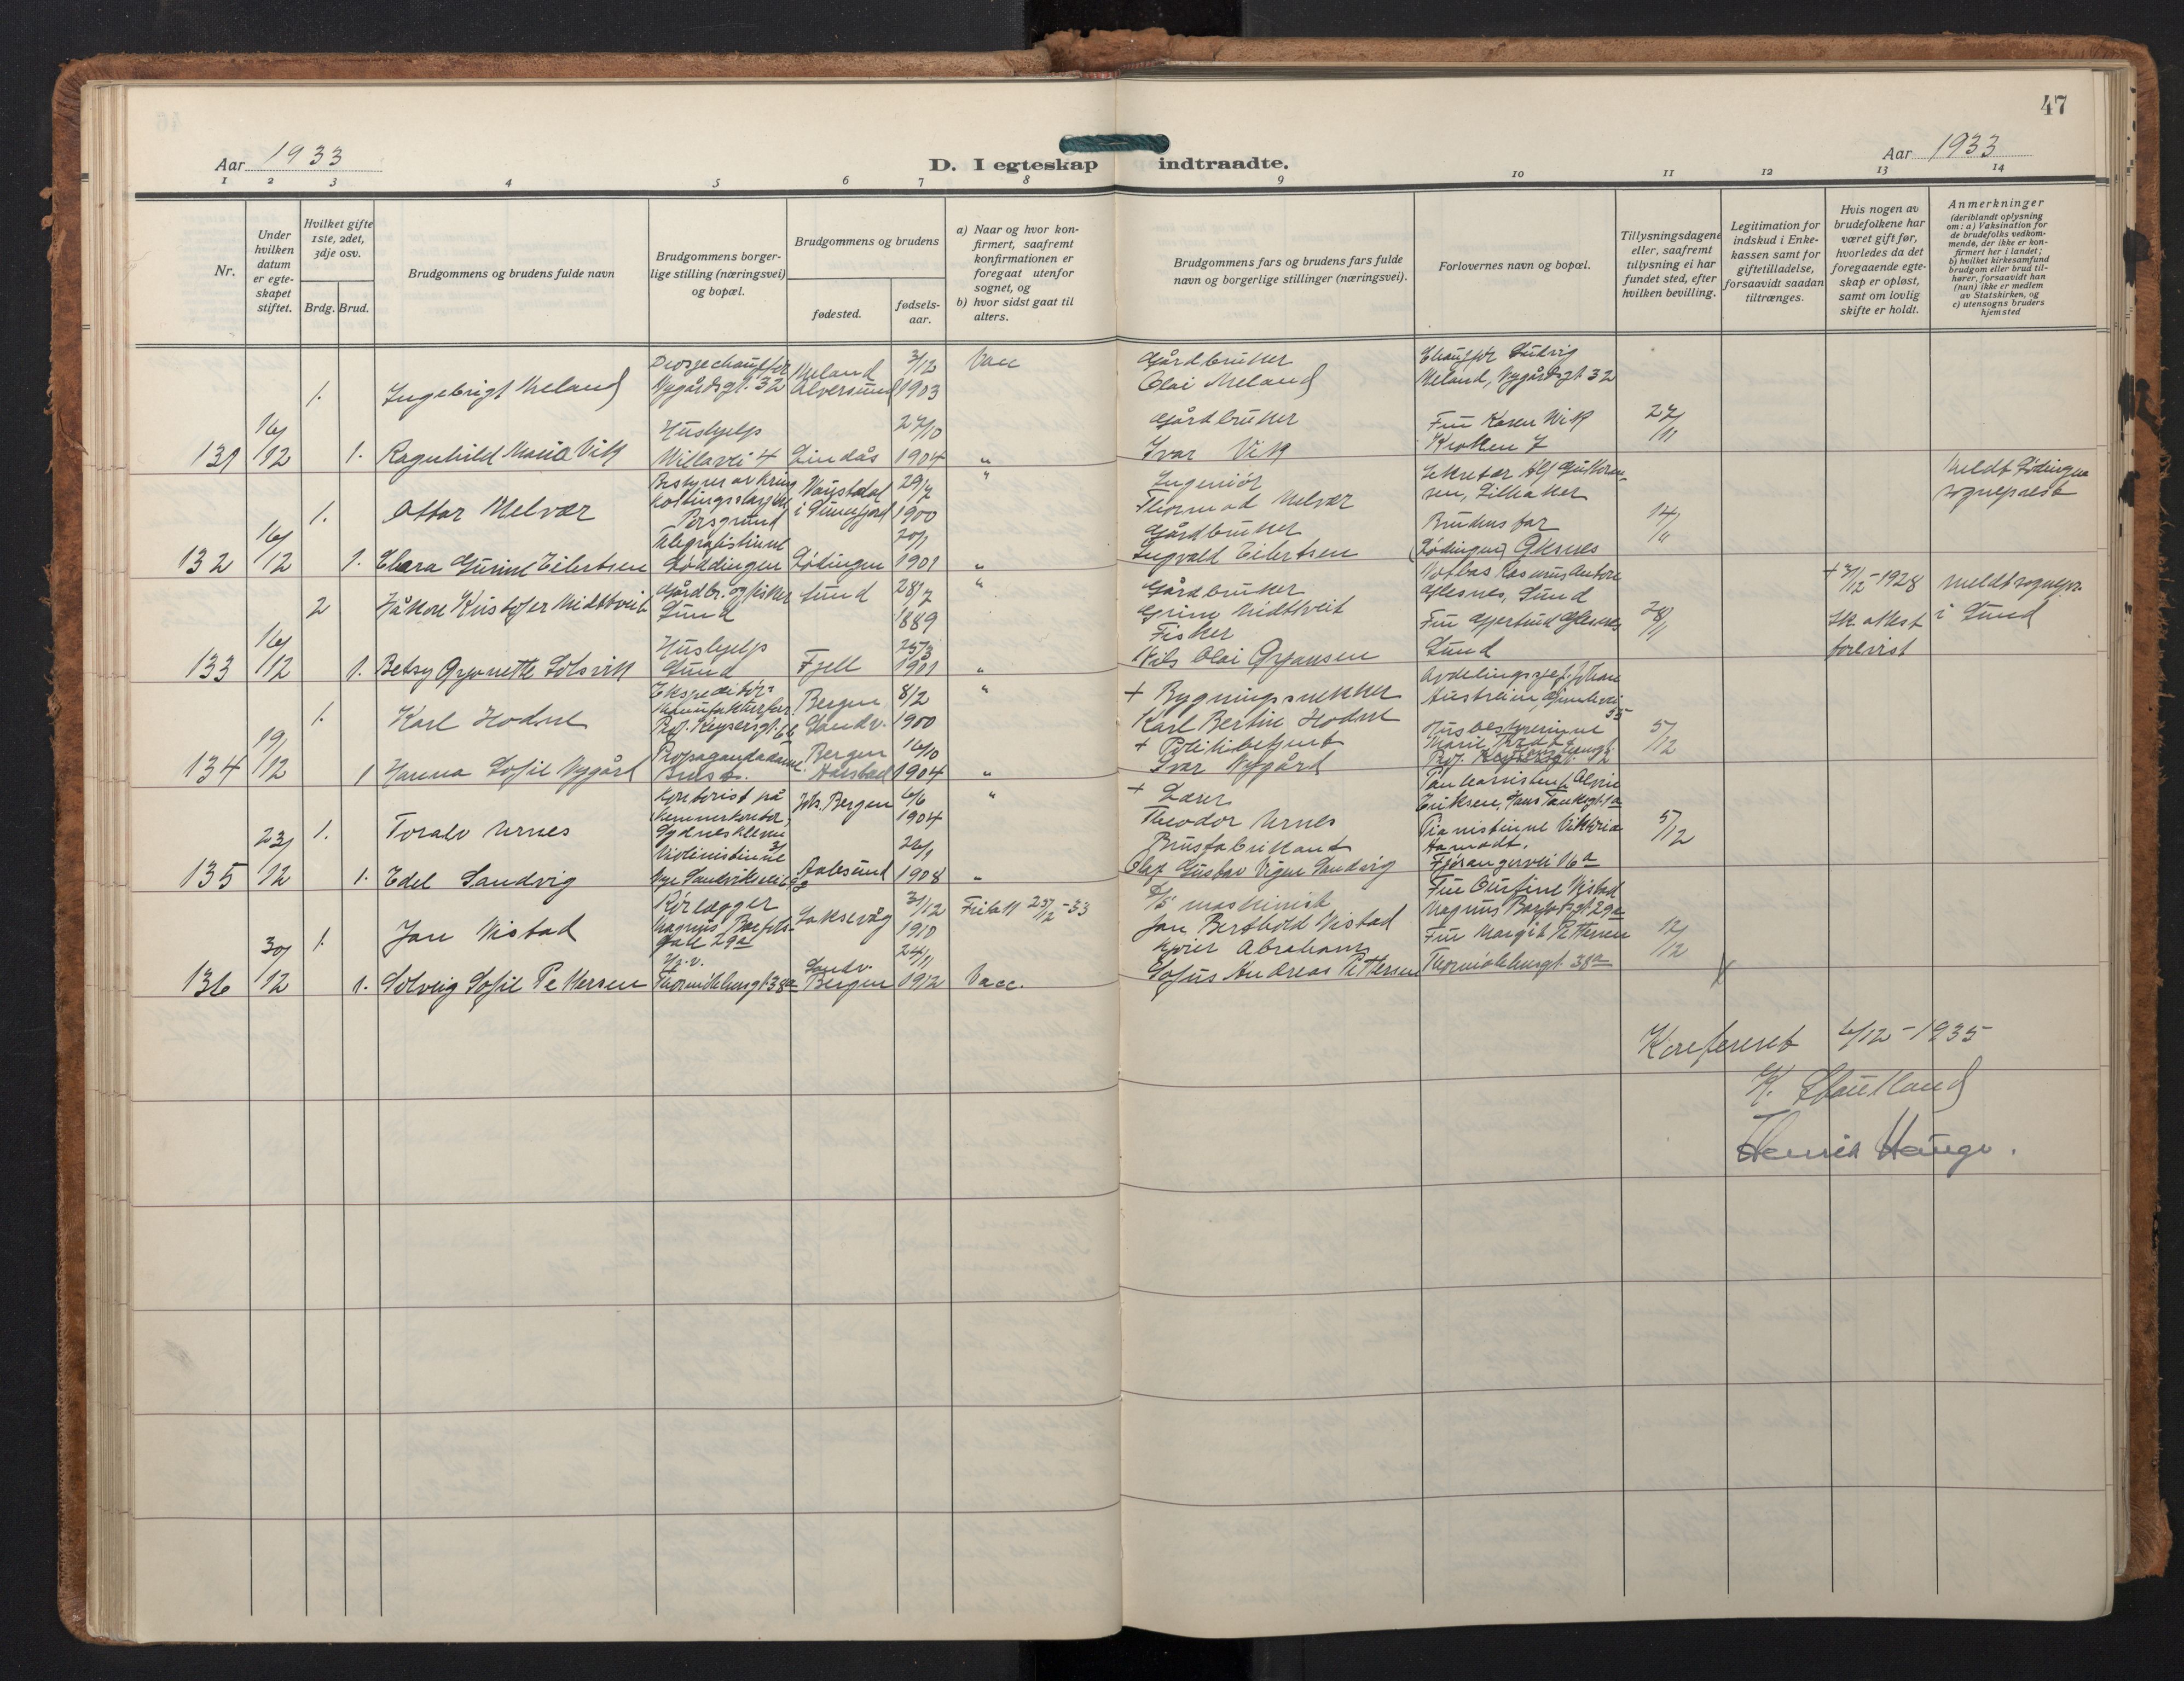 47
Aar 1933
D. I egteskap indtraadte.
Aar 1933
1 2 3 4 5 6 7 8 9 10 11 12 13 14
Nr.
Under hvilken datum er egteskapet stiftet.
Hvilket gifte 1ste, 2det, 3dje osv.
Brdg. Brud.
Brudgommens og brudens fulde navn
Brudgommens borgerlige stilling (næringsvei) og bopæl.
Brudgommens og brudens
fødested.
fødselsaar.
a) Naar og hvor konfirmert, saafremt konfirmationen er foregaat utenfor sognet, og
b) hvor sidst gaat til alters.
Brudgommens fars og brudens fars fulde navn og borgerlige stillinger (næringsvei).
Forlovernes navn og bopæl.
Tillysningsdagene eller, saafremt tillysning ei har fundet sted, efter hvilken bevilling.
Legitimation for indskud i Enkekassen samt for giftetilladelse, forsaavidt saadan tiltrænges.
Hvis nogen av brudefolkene har været gift før, hvorledes da det foregaaende egteskap er opløst, samt om lovlig skifte er holdt.
Anmerkninger (deriblandt oplysning om: a) Vaksination for de brudefolks vedkommende, der ikke er konfirmert her i landet; b) hvilket kirkesamfund brudgom eller brud tilhører, forsaavidt han (hun) ikke er medlem av Statskirken, og c) utensogns bruders hjemsted
1. Ingebrigt Meland
Drosjechauffør
Nygårdsgt. 32
Meland
Alversund
3/12
1903
Vacc
Gårdbruker
Olai Meland
Chauffør Ludvig
Meland, Nygårdsgt 32
131 16/12 1. Ragnhild Maria Vik
Hushjelp
Lindås
27/10
1904
"
Gårdbruker
Ivar Vik
Fru Karen Vik
Kroken 7
27/11
1. Ottar Melvær
Porsgrund
29/7
1900
"
Ingeniør
Thormod Melvær
Meldt Lødingen
sogneprest
132 16/12 1. Clara Gurine Eilertsen
Telegrafistinne
Løddingen
Lødingen
20/1
1901
"
Gårdbruker
Ingvald Eilertsen
Brudens far
(Lødingen) Oksnes
14/11
2 Håkon Kristofer Midttveit
Gårdbr. og fisker
Sund
Sund
28/7
1889
"
Gårdbruker
Grim Midttveit
Notbas Rasmus Anton
Glesnes, Sund
+ 7/12-1928
Sk. attest
forevist
meldt sognepr.
i Sund
133 16/12 1. Betsy Grjonette Solsvik
Hushjelp
Sund
Fjell
25/3
1901
"
Fisker
Nils Olai Grjansen
Fru Gjertrud Glesnes
Sund
28/11
1. Karl Hodne
Ekspeditør
Prof. Keysersgt. 6b
Bergen
Sandv.
8/2
1900
"
+ Bygningssnekker
Karl Bertin Hodne
134 19/12 1 Hanna Sofie Nygård
Bergen
16/10
1904
"
+ Politibetjent
Ivar Nygård
Husbestyrerinne
5/12
1. Toralv Urnes
Kontorist på
Kemnerkontor,
Joh. Bergen
6/6
1904
"
+ Lærer
Theodor Urnes
135 23/12 1. Edel Sandvig
Violinistinne
Aalesund
26/1
1908
"
Brusfabrikant
Olaf Gustav Vigen Sandvig
Pianistinne Viktoria
Hamodt.
Fjøsangervei 16a
5/12
1. Jan Vistad
Rørlegger
Magnus Barfots-
gate 29a
Laksevåg
3/12
1910
Frikk 23/12-33
D/S maskinist
Jan Berthold Vistad
Fru Gurine Vistad
Magnus Barfotsgt 29a
136 30/12 1. Solveig Sofie Pettersen
H.v.
Thormøhlensgt 38a
Sandv.
Bergen
24/11
1912
Vacc.
Kjører Abraham
Sofus Andreas Pettersen
Fru Margit Pettersen
Thormøhlensgt. 38a
12/12
Konferert 6/12-1935
K. Støutland
Henrik Hauge.